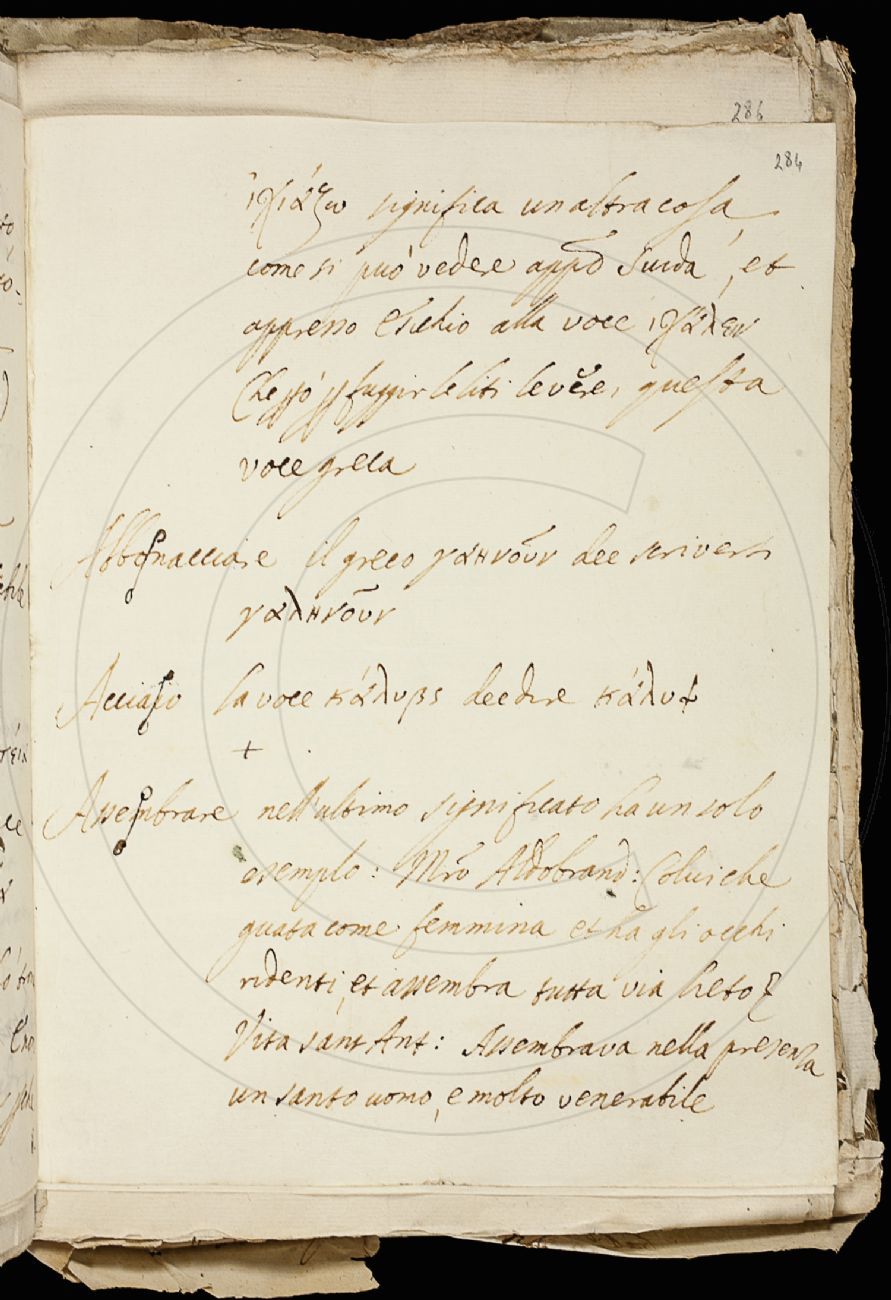 286
284
significa un altra cosa,
come si può vedere appo Suida, et
appresso Esichio alla voce
Che però fuggir le liti levere, questa
voce greca
Abbonacciare il greco γαηνοῦν dee scriversi
γαληνοῦν
Acciaio la voce κάλυβς dee dire κάλυψ
+
Assembrare nell'ultimo significato ha un solo
esemplo: Mro Aldobrand: Colui che
guata come femmina et ha gli occhi
ridenti, et assembra tutta via lieto
Vita sant Ant: Assembrava nella presenza
un santo uomo, e molto venerabile